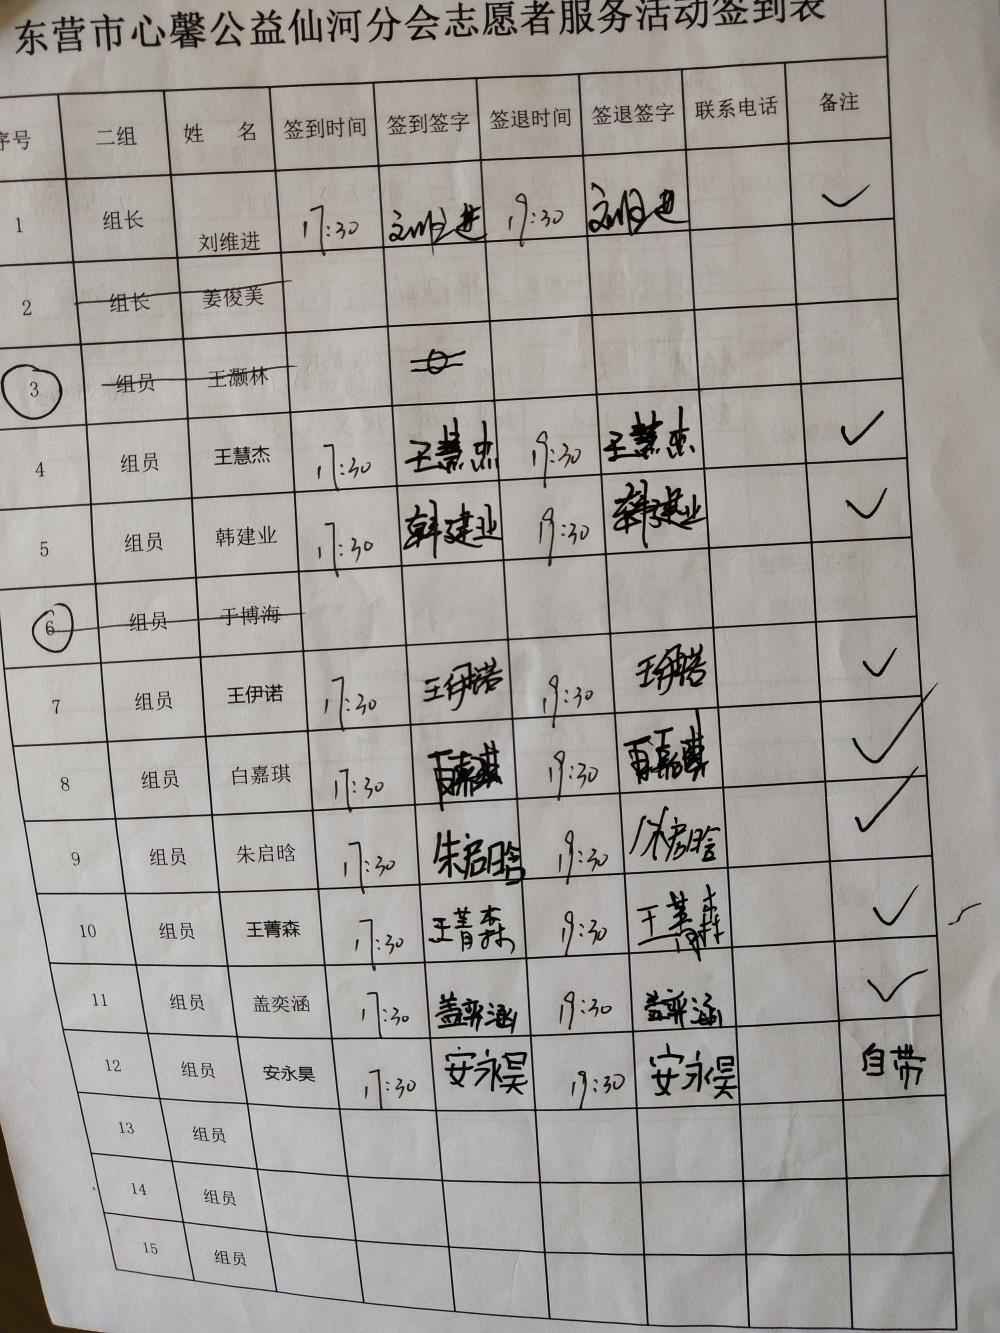 东营市心馨公益仙河分会志愿者服务活动签到表
序号 二组 姓 名 签到时间 签到签字 签退时间 签退签字 联系电话 备注
1 组长 刘维进 17:30 刘维进 19:30 刘维进 ✓
2 组长 姜俊美
3 组员 王灏林
4 组员 王慧杰 17:30 王慧杰 19:30 王慧杰 ✓
5 组员 韩建业 17:30 韩建业 19:30 韩建业 ✓
6 组员 于博海
7 组员 王伊诺 17:30 王伊诺 19:30 王伊诺 ✓
8 组员 白嘉琪 17:30 白嘉琪 19:30 白嘉琪 ✓
9 组员 朱启晗 17:30 朱启晗 19:30 朱启晗 ✓
10 组员 王菁森 17:30 王菁森 19:30 王菁森 ✓
11 组员 盖奕涵 17:30 盖奕涵 19:30 盖奕涵 ✓
12 组员 安永昊 17:30 安永昊 19:30 安永昊 自带
13 组员
14 组员
15 组员